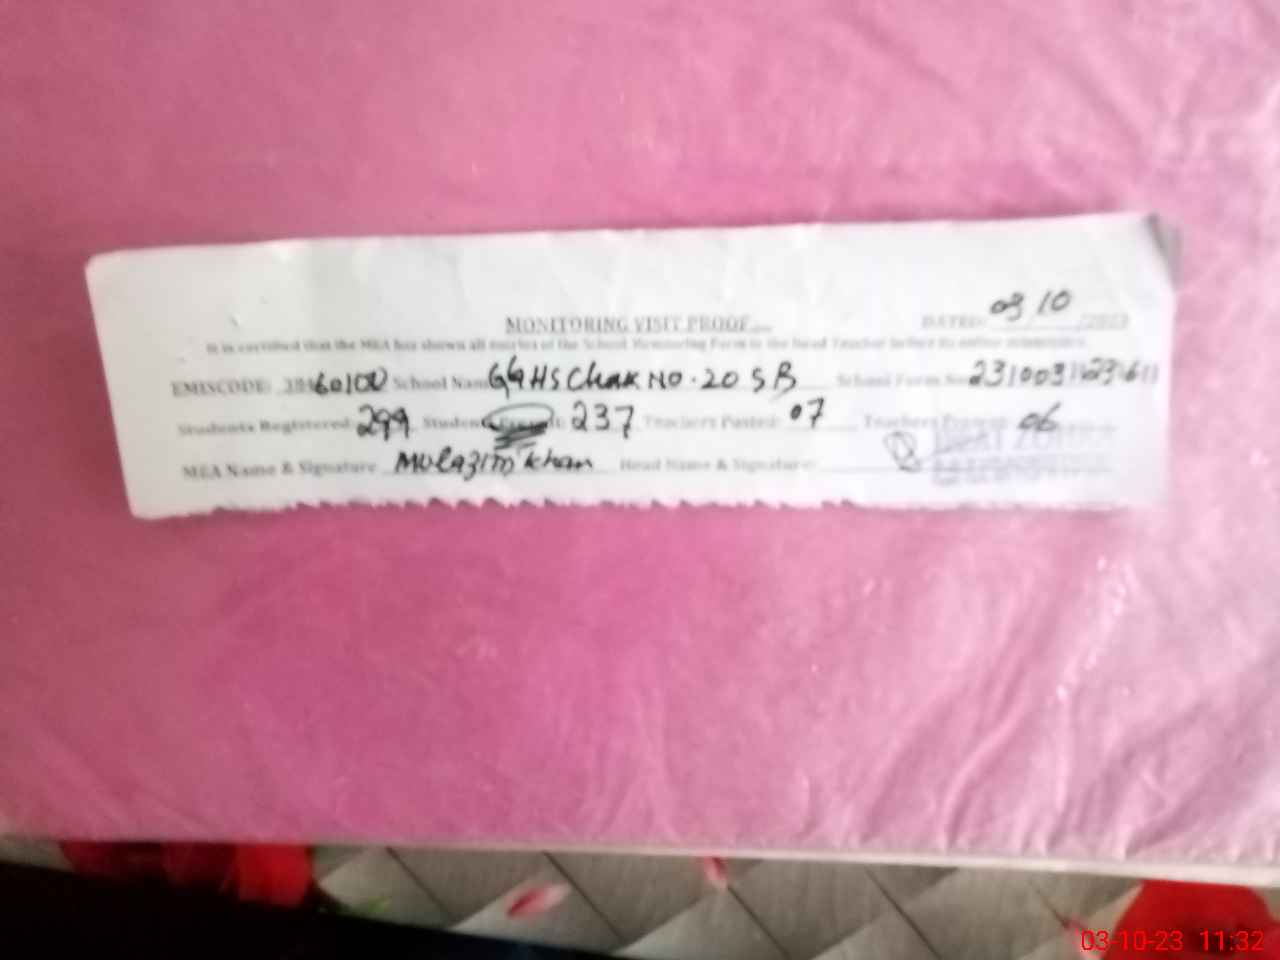 MONITORING VISIT PROOF
DATED: 03/10/2023
It is certified that the MEA has shown all entries of the School Monitoring Form to the Head Teacher before its online submission.
EMISCODE: 60100 School Name GGHS Chak NO. 20 SB School Form No
Students Registered: 299 Students Present: 237 Teachers Posted: 07 Teachers Present: 06
MEA Name & Signature Mulazim Khan Head Name & Signature:
03-10-23 11:32